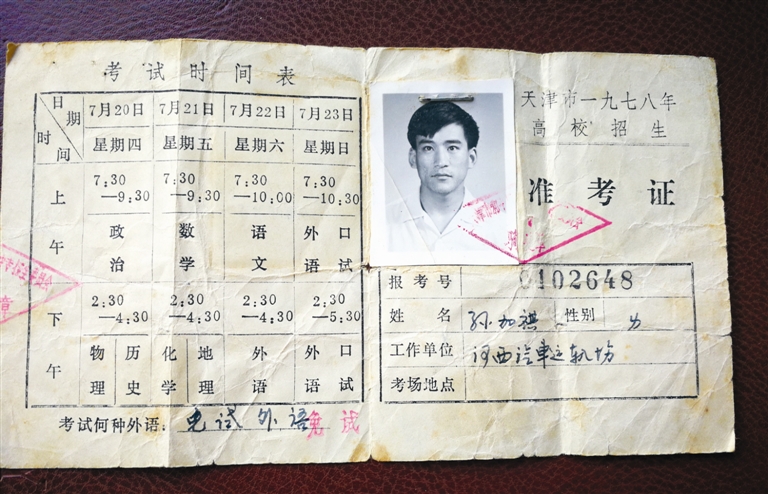 考试时间表
日期 时间 7月20日 7月21日 7月22日 7月23日
星期四 星期五 星期六 星期日
上午 7:30—9:30 7:30—9:30 7:30—10:00 7:30—10:30
政治 数学 语文 外语口试
下午 2:30—4:30 2:30—4:30 2:30—4:30 2:30—5:30
物理 历史 化学 地理 外语 外语口试
考试何种外语：免试外语 免试
天津市一九七八年
高校招生
准考证
报考号 0102648
姓名 孙加祺 性别 男
工作单位 河西汽车运轧场
考场地点